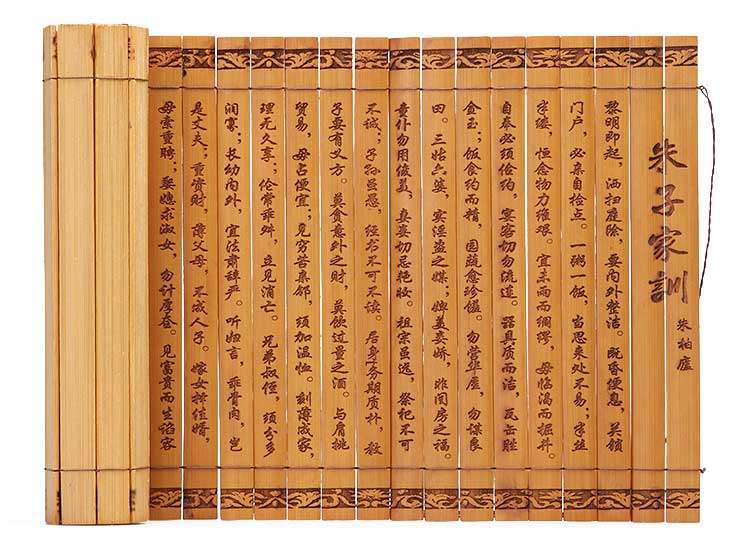 朱子家訓
朱柏廬
黎明即起，洒扫庭除，要内外整洁。既昏便息，关锁
门户，必亲自检点。一粥一饭，当思来处不易；半丝
半缕，恒念物力维艰。宜未雨而绸缪，毋临渴而掘井。
自奉必须俭约，宴客切勿流连。器具质而洁，瓦缶胜
金玉；饭食约而精，园蔬愈珍馐。勿营华屋，勿谋良
田。三姑六婆，实淫盗之媒；婢美妾娇，非闺房之福。
童仆勿用俊美，妻妾切忌艳妆。祖宗虽远，祭祀不可
不诚；子孙虽愚，经书不可不读。居身务期质朴，教
子要有义方。莫贪意外之财，莫饮过量之酒。与肩挑
贸易，毋占便宜；见穷苦亲邻，须加温恤。刻薄成家，
理无久享；伦常乖舛，立见消亡。兄弟叔侄，须分多
润寡；长幼内外，宜法肃辞严。听妇言，乖骨肉，岂
是丈夫；重资财，薄父母，不成人子。嫁女择佳婿，
毋索重聘；娶媳求淑女，勿计厚奁。见富贵而生谄容